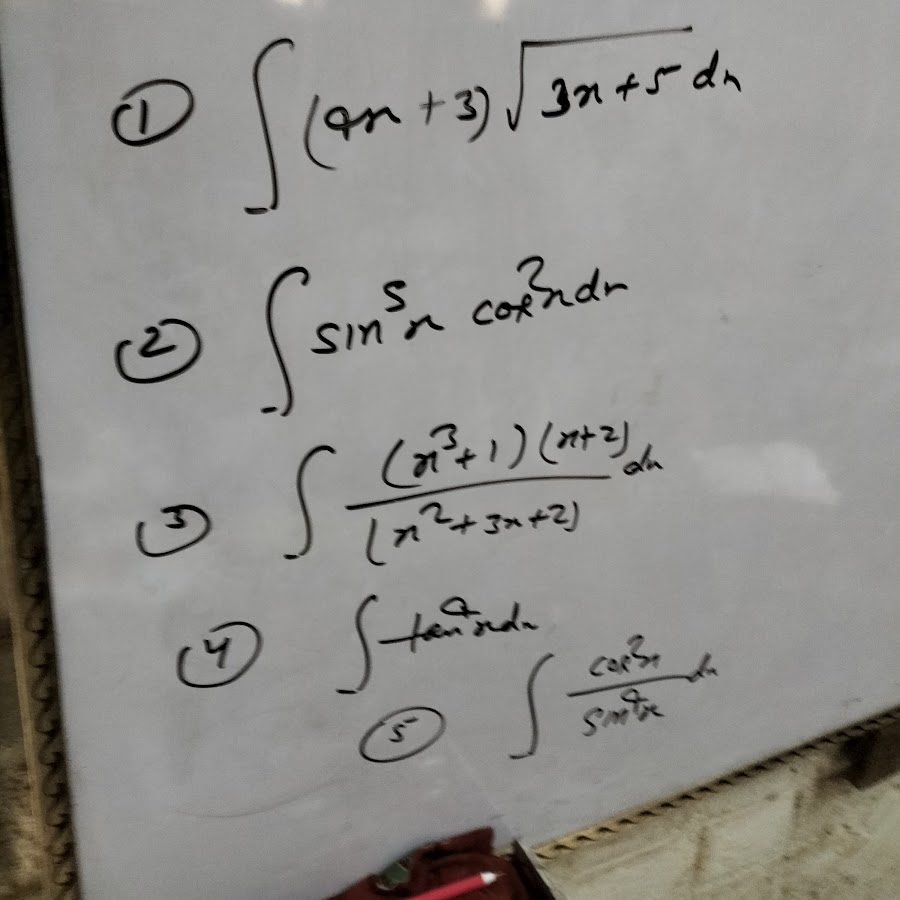 ① ∫ (4x + 3) √(3x + 5) dx
② ∫ sin⁵x cos²x dx
③ ∫ (x³ + 1) (x + 2) / (x² + 3x + 2) dx
④ ∫ tan⁴x dx
⑤ ∫ cos²x / sin⁴x dx